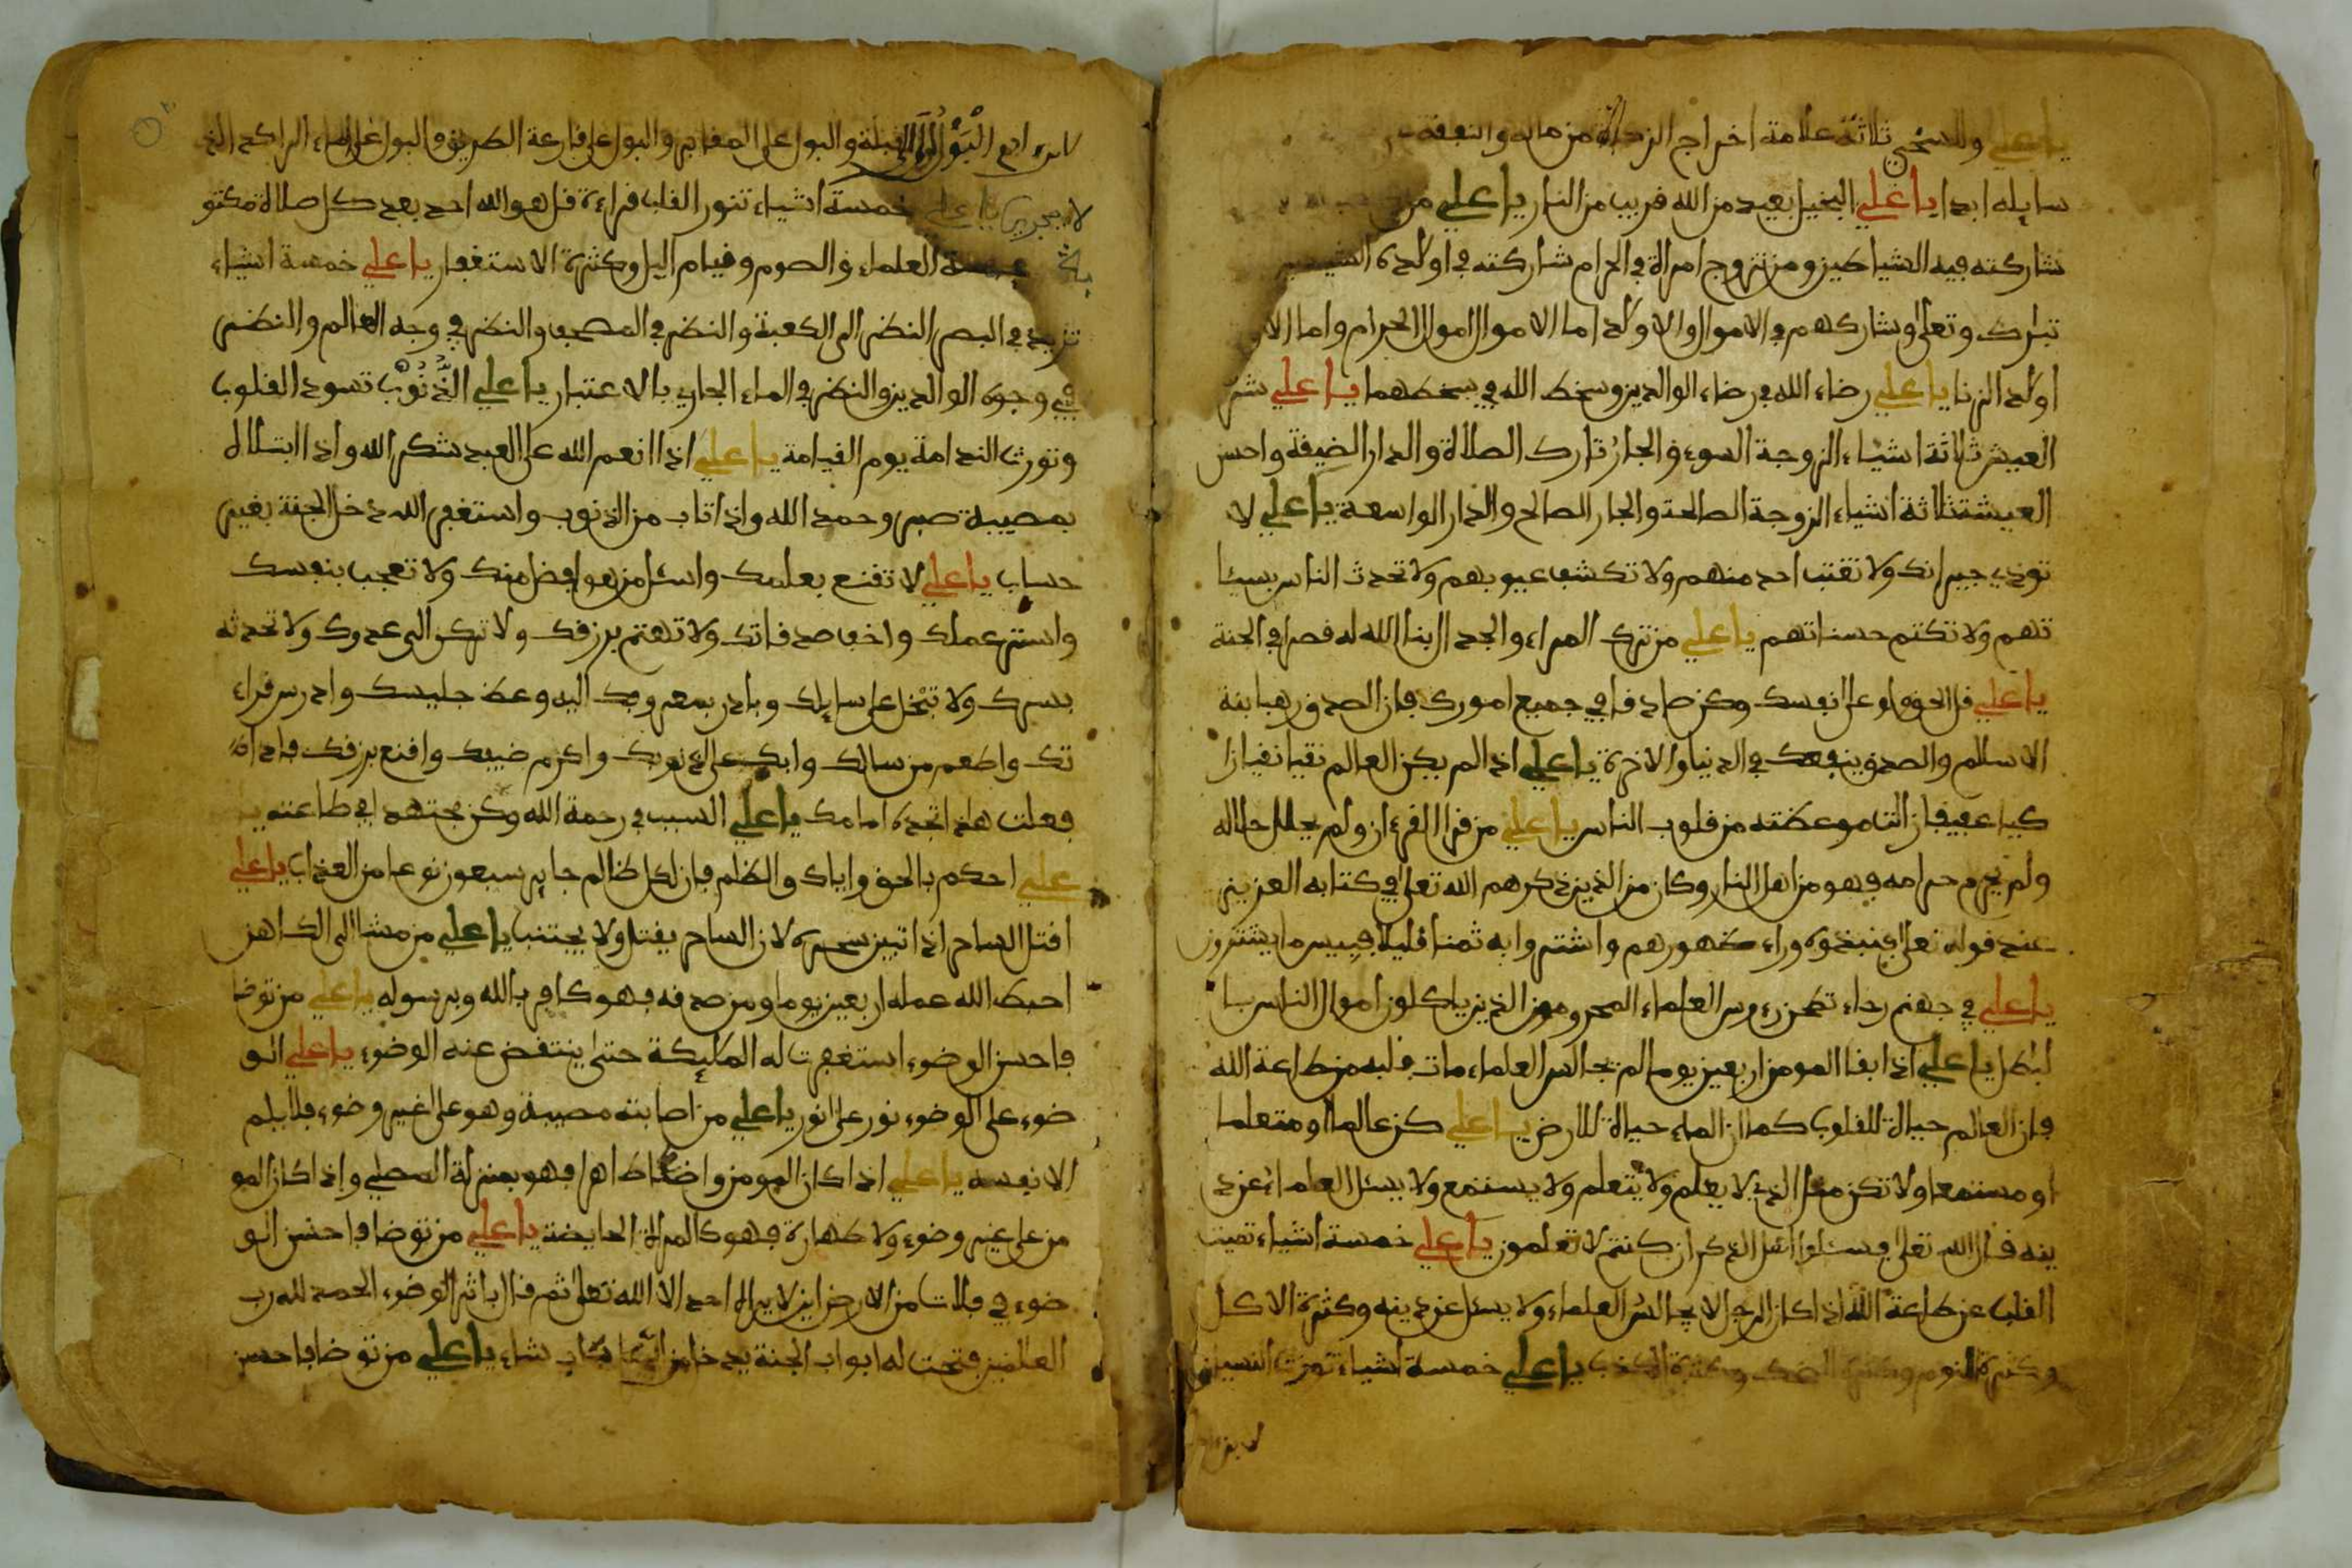 يا علي وللسخي ثلاثة علامة اخراج الزكاة من ماله والنفقة
سايله ابدا يا علي البخيل بعيد من الله قريب من النار يا علي من
شاركته فيه الشياطين ومن تزوج امراة في الحرام شاركته في اولاده
تبارك وتعلى وشاركهم في الاموال والاولاد اما الاموال اموال الحرام واما
اولاد الزنا يا علي رضاء الله في رضاء الوالدين وسخط الله في سخطهما يا علي شر
العيش ثلاثة اشياء الزوجة السوء والجار تارك الصلاة والدار الضيقة واحسن
العيشة ثلاثة اشياء الزوجة الصالحة والجار الصالح والدار الواسعة يا علي لا
توذي جيرانك ولا تغتب احد منهم ولا تكشف عيوبهم ولا تحدث الناس بسيئا
تهم ولا تكتم حسناتهم يا علي من ترك المراء والجدال بنا الله له قصرا في الجنة
يا علي قل الحق ولو على نفسك وكن صادقا في جميع امورك فان الصدق رهبانية
الاسلام والصدق ينفعك في الدنيا والاخرة يا علي اذا لم يكن العالم نقيا تقيا زا
كيا عفيفا زالت موعظته من قلوب الناس يا علي من قرا القرءان ولم يحلل حلاله
ولم يحرم حرامه فهو من اهل النار وكان من الذين ذكرهم الله تعلى في كتابه العزيز
عند قوله تعلى فنبذوه وراء ظهورهم واشتروا به ثمنا قليلا فبيس ما يشترون
يا علي في جهنم رحاء تطحن رءوس العلماء المجرمين الذين ياكلون اموال الناس با
لبطل يا علي اذا بقا المومن اربعين يوما لم يجالس العلماء مات قلبه من طاعة الله
فان العالم حياة للقلوب كما ان الماء حياة للارض يا علي كن عالما او متعلما
او مستمعا ولا تكن مثل الذي لا يعلم ولا يتعلم ولا يستمع ولا يسئل العلماء عن د
ينه قال الله تعلى فسئلوا اهل الذكر ان كنتم لا تعلمون يا علي خمسة اشياء تميت
القلب عن طاعة الله اذا كان الرجل لا يجالس العلماء ولا يسئل عن دينه وكثرة الاكل
وكثرة النوم وكثرة الضحك وكثرة الكذب يا علي خمسة اشياء تورث النسيان
البول القبلة والبول على المقابر والبول على قارعة الطريق والبول على الماء الراكد الذي
لا يجري يا علي خمسة اشياء تنور القلب قراءة قل هو الله احد بعد كل صلاة مكتو
بة العلماء والصوم وقيام اليل وكثرة الاستغفار يا علي خمسة اشياء
تزيد في البصر النظر الى الكعبة والنظر في المصحف والنظر في وجه العالم والنظر
في وجوه الوالدين والنظر في الماء الجاري بالاعتبار يا علي الذنوب تسود القلوب
وتورث الندامة يوم القيامة يا علي اذا انعم الله على العبد شكر الله واذا ابتلاه
بمصيبة صبر وحمد الله واذا تاب من الذنوب واستغفر الله دخل الجنة بغير
حساب يا علي لا تقنع بعلمك واسئل من هو افضل منك ولا تعجب بنفسك
واستر عملك واخف صدقاتك ولا تهتم برزقك ولا تركن الى عدوك ولا تحدثه
بسرك ولا تبخل على سايلك وبادر بمعروفك اليه وعظ جليسك وادرس قراء
تك واطعم من سالك وابك على ذنوبك واكرم ضيفك واقنع برزقك فاذا
فعلت هذا تجده امامك يا علي السبب في رحمة الله وكن مجتهدا في طاعته يا
علي احكم بالحق واياك والظلم فان لكل ظالم جاير سبعون نوعا من العذاب يا علي
اقتل الساحر اذا تبين سحره لان الساحر يقتل ولا يجتنب يا علي من مشا الى الكاهن
احبط الله عمله اربعين يوما ومن صدقه فهو كافر بالله وبرسوله يا علي من توضا
فاحسن الوضوء استغفرت له المليكة حتى ينتقض عنه الوضوء يا علي الو
ضوء على الوضوء نور على نور يا علي من اصابته مصيبة وهو على غير وضوء فلا يلم
الا نفسه يا علي اذا كان المومن واضئا طاهرا فهو بمنزلة المصلي واذا كان المو
من على غير وضوء ولا طهارة فهو كالمراة الحايضة يا علي من توضا فاحسن الو
ضوء في فلات من الارض اين لا يراه احد الا الله تعلى ثم قال باثر الوضوء الحمد لله رب
العلمين فتحت له ابواب الجنة يدخل من اي باب شاء يا علي من توضا فاحسن